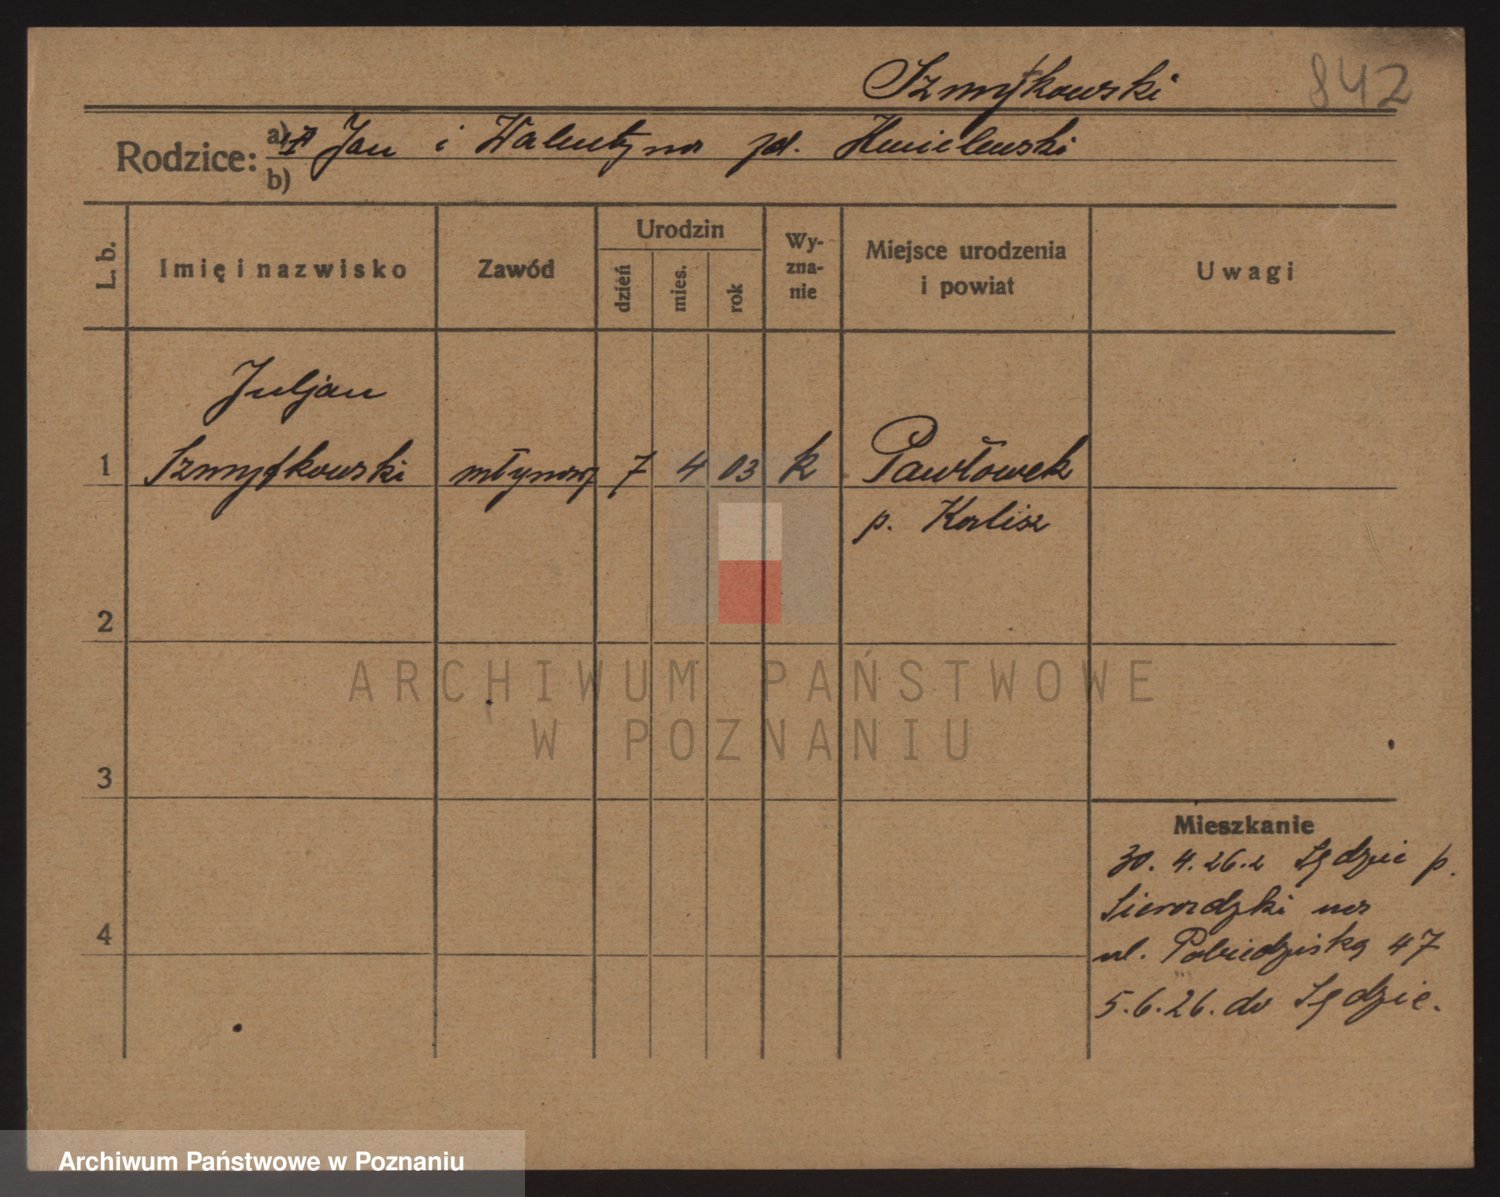 Szmytkowski 842
Rodzice: a) Jan i Walentyna zd. Hmielewski
b)
L. b. Imię i nazwisko Zawód Urodzin dzień mies. rok Wyznanie Miejsce urodzenia i powiat Uwagi
Juljan
1 Szmytkowski młynarz 7 4 03 k Pawłowek
p. Kalisz
2
3
4
Mieszkanie
30. 4. 26. z p.
Sieradzki na
ul. Pobiedziską 47
5.6.26. do
ARCHIWUM PAŃSTWOWE
W POZNANIU
Archiwum Państwowe w Poznaniu